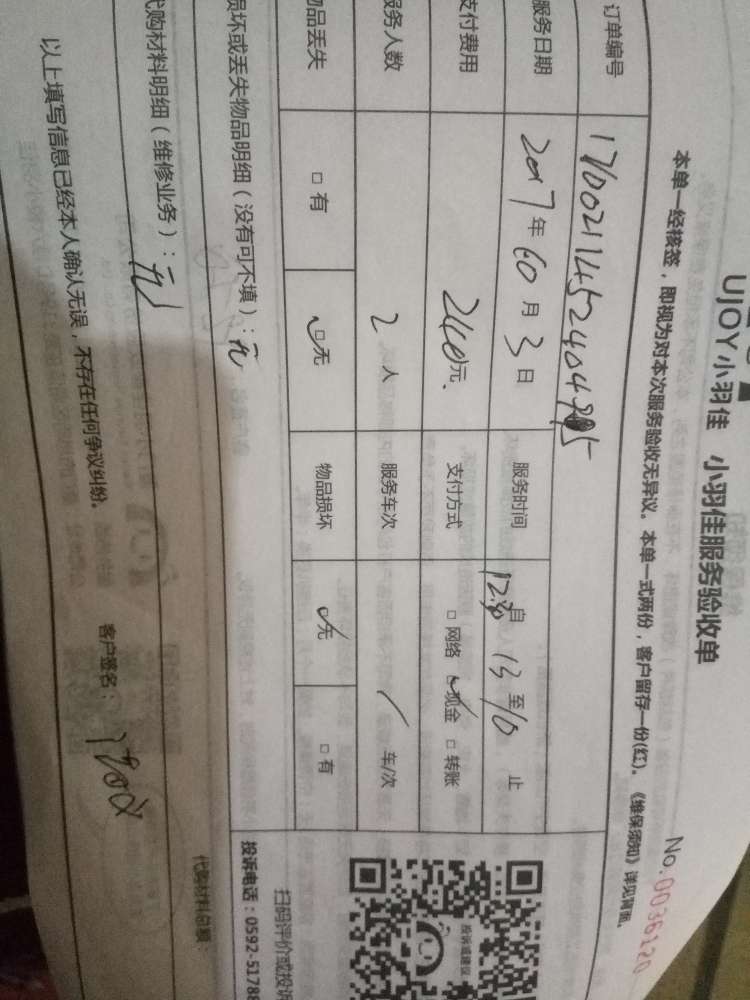 UJOY小羽佳 小羽佳服务验收单
No.0036120
本单一经核签，即视为对本次服务验收无异议。本单一式两份，客户留存一份(红)。《维保须知》详见背面。
订单编号
服务日期 2017年 60月 3日 服务时间 自 至 止
支付费用 240元 支付方式 □ 网络 □ 现金 □ 转账
服务人数 2 人 服务车次 / 车/次
物品丢失 □ 有 □ 无 物品损坏 □ 无 □ 有
损坏或丢失物品明细（没有可不填）：无
扫码评价或投诉
投诉建议
投诉电话：0592-5178
代购材料明细（维修业务）：无 代购材料总额：
以上填写信息已经本人确认无误，不存在任何争议纠纷。 客户签名：